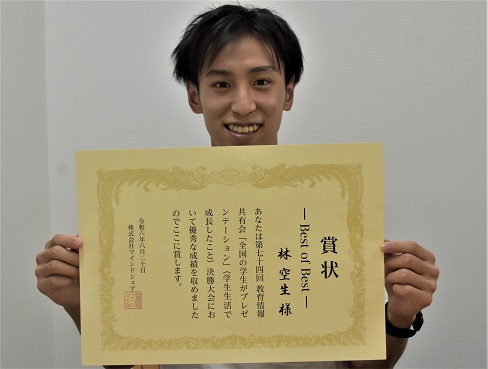 賞状
― Best of Best ―
林 空生 様
あなたは第七十四回 教育情報
共有会「全国の学生がプレゼ
ンテーション」（学生生活で
成長したこと）決勝大会にお
いて優秀な成績を収めました
のでここに賞します。
令和六年八月二十日
株式会社マインドシェア